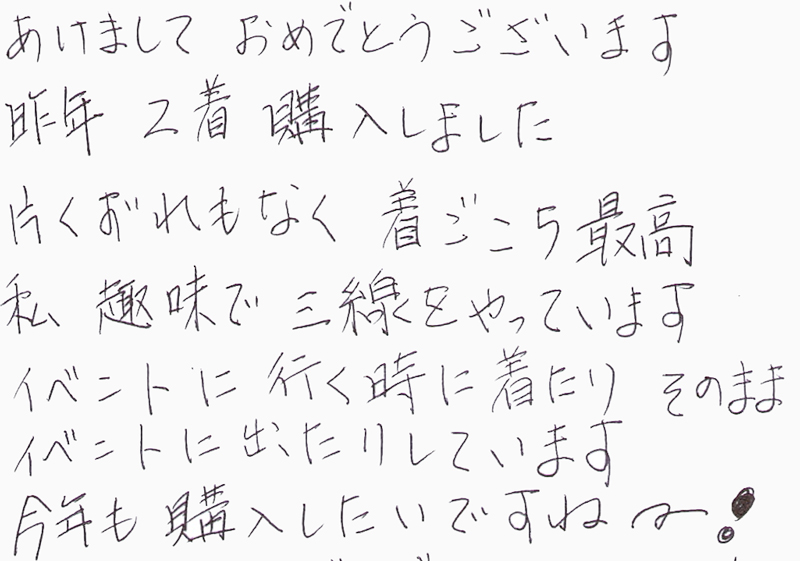 あけまして おめでとうございます
昨年 2着 購入しました
片くずれもなく 着ごこち最高
私 趣味で 三線をやっています
イベントに 行く時に着たり そのまま
イベントに出たりしています
今年も 購入したいですね〜!